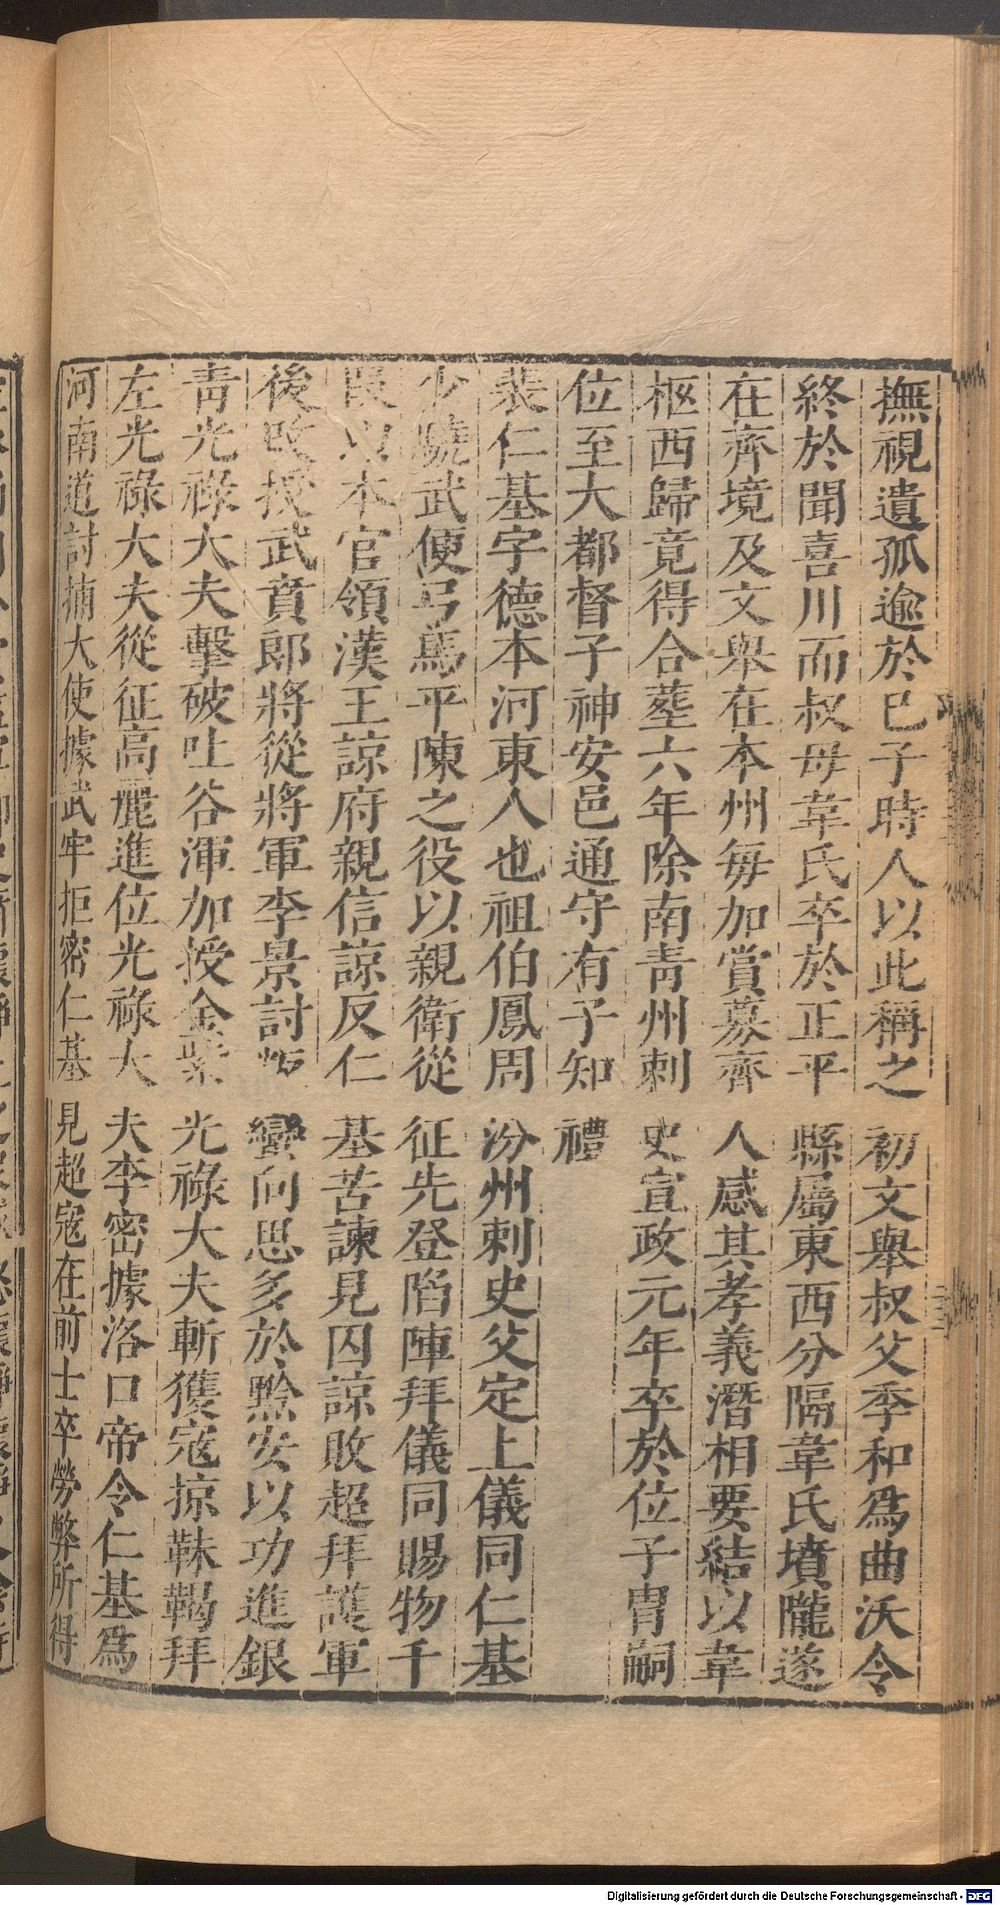 撫視遺孤逾於已子時人以此稱之初文舉叔父季和爲曲沃令
終於聞喜川而叔母韋氏卒於正平縣屬東西分隔韋氏墳隴遂
在齊境及文舉在本州每加賞募齊人感其孝義潛相要結以韋
柩西歸竟得合葬六年除南青州刺史宣政元年卒於位子胄嗣
位至大都督子神安邑通守有子知禮
裴仁基字德本河東人也祖伯鳳周汾州刺史父定上儀同仁基
少驍武便弓馬平陳之役以親衛從征先登陷陣拜儀同賜物千
段以本官領漢王諒府親信諒反仁基苦諫見囚諒敗超拜護軍
後改授武賁郎將從將軍李景討叛蠻向思多於黔安以功進銀
青光祿大夫擊破吐谷渾加授金紫光祿大夫斬獲寇掠靺鞨拜
左光祿大夫從征高麗進位光祿大夫李密據洛口帝令仁基爲
河南道討捕大使據武牢拒密仁基見超寇在前士卒勞弊所得
Digitalisierung gefördert durch die Deutsche Forschungsgemeinschaft - DFG